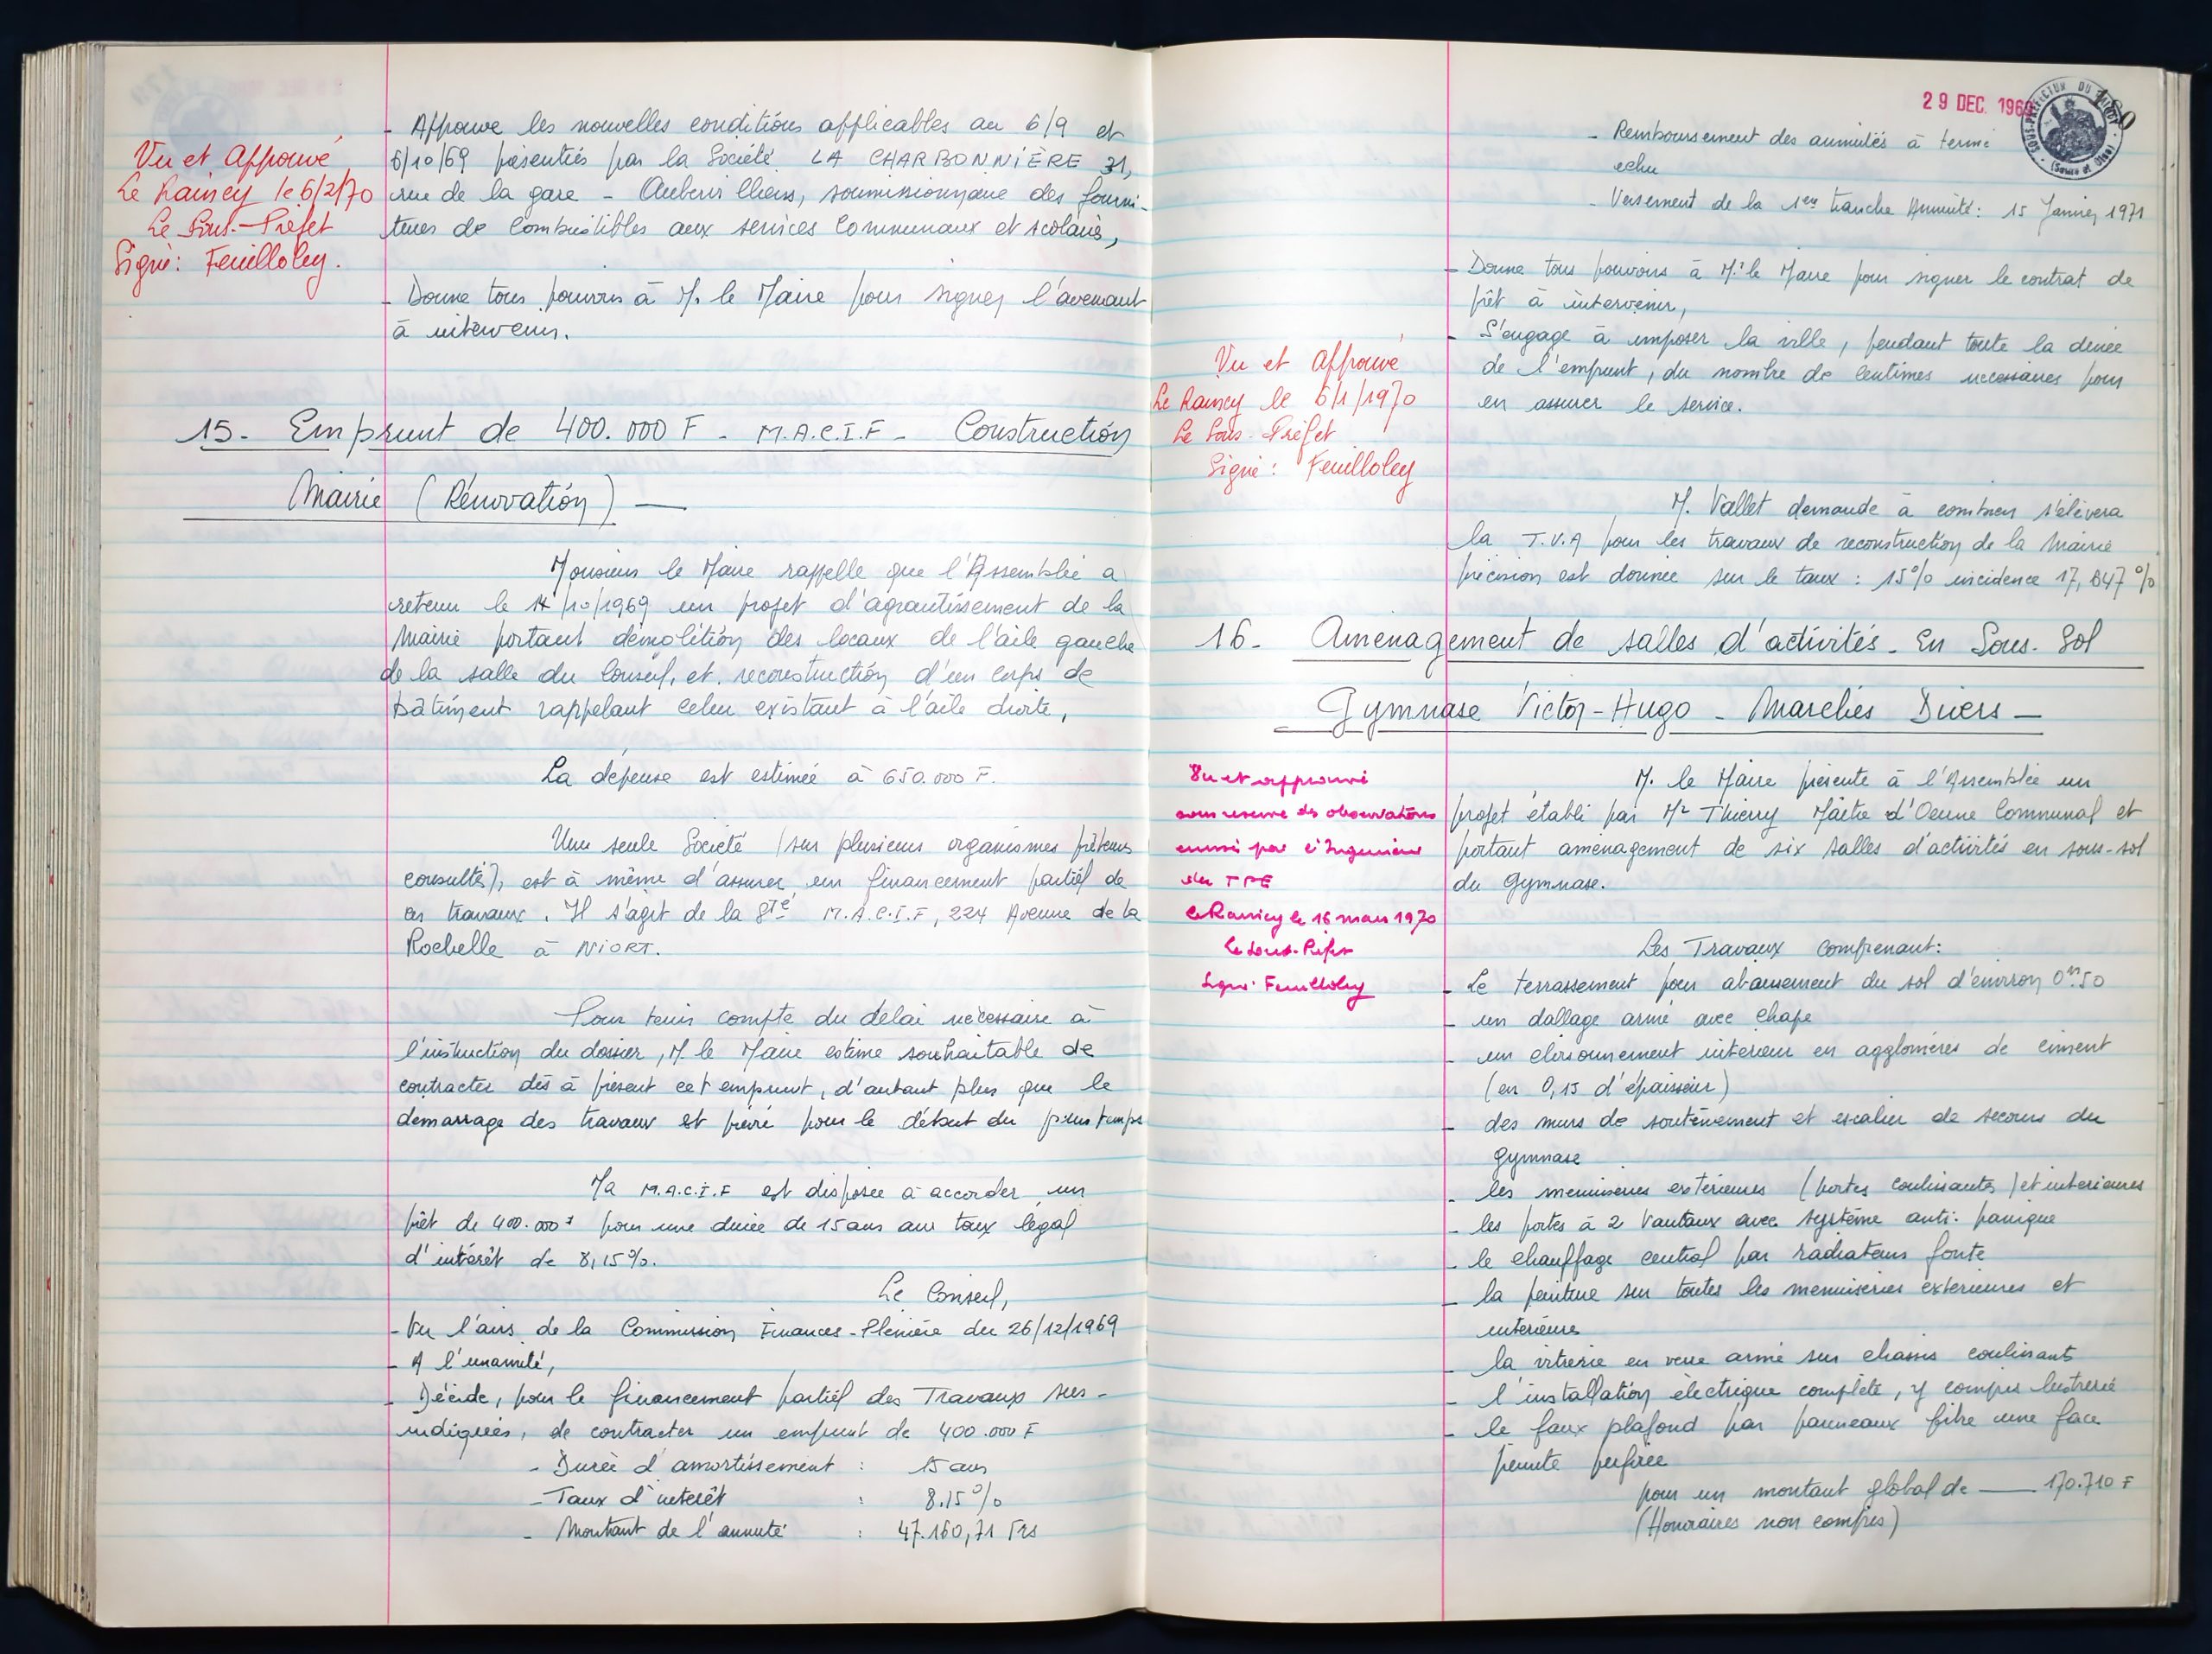 - Approuve les nouvelles conditions applicables au 6/9 et
6/10/69 présentées par la Société LA CHARBONNIÈRE 31,
rue de la gare - Aubervilliers, soumissionnaire des fourni-
tures de Combustibles aux services Communaux et scolaires,
- Donne tous pouvoirs à M. le Maire pour signer l'avenant
à intervenir.
Vu et Approuvé
Le Raincy le 6/2/70
Le Sous-Préfet
Signé: Feuilloley.
15- Emprunt de 400.000 F - M.A.C.I.F - Construction
Mairie (Rénovation) —
Monsieur le Maire rappelle que l'Assemblée a
retenu le 14/10/1969 un projet d'agrantissement de la
Mairie portant démolition des locaux de l'aile gauche
de la salle du Conseil, et reconstruction d'un corps de
bâtiment rappelant celui existant à l'aile droite,
La dépense est estimée à 650.000 F.
Une seule Société (sur plusieurs organismes prêteurs
consultés), est à même d'assurer un financement partiel de
ces travaux. Il s'agit de la Sté M.A.C.I.F, 224 Avenue de la
Rochelle à NIORT.
Pour tenir compte du délai nécessaire à
l'instruction du dossier, M. le Maire estime souhaitable de
contracter dès à présent cet emprunt, d'autant plus que le
démarrage des travaux est prévu pour le début du printemps
La M.A.C.I.F est disposée à accorder un
prêt de 400.000 F pour une durée de 15 ans au taux légal
d'intérêt de 8,15%.
Le Conseil,
- Vu l'avis de la Commission Finances-Plénière du 26/12/1969
- A l'unamité,
- Décide, pour le financement partiel des Travaux sus-
indiqués, de contracter un emprunt de 400.000 F
- Durée d'amortissement : 15 ans
- Taux d'intérêt : 8.15%
- Montant de l'annuité : 47.160,71 Frs
29 DEC. 1969
SOUS-PRÉFECTURE DU RAINCY
(Seine et Oise)
- Remboursement des annuités à terme
echu
- Versement de la 1ère tranche Annuité: 15 Janvier 1971
- Donne tous pouvoirs à M. le Maire pour signer le contrat de
prêt à intervenir,
- S'engage à imposer la ville, pendant toute la durée
de l'emprunt, du nombre de Centimes necessaires pour
en assurer le service.
Vu et Approuvé
Le Raincy le 6/1/1970
Le Sous-Préfet
Signé: Feuilloley
M. Vallet demande à combien s'élèvera
la T.V.A pour les travaux de reconstruction de la Mairie
précision est donnée sur le taux : 15% incidence 17,647%
16- Aménagement de salles d'activités - En Sous-Sol
Gymnase Victor-Hugo - Marchés Divers —
Vu et approuvé
sous reserve des observations
émises par l'Ingénieur
des TPE
le Raincy le 16 mars 1970
Le Sous-Préfet
Signé: Feuilloley
M. le Maire présente à l'Assemblée un
projet établi par Mr Thierry Maître d'Oeuvre Communal et
portant aménagement de six salles d'activités en sous-sol
du Gymnase.
Les Travaux comprenant:
- Le terrassement pour abaissement du sol d'environ 0m.50
- un dallage armé avec chape
- un cloisonnement intérieur en agglomérés de ciment
(en 0,15 d'épaisseur)
- des murs de soutènement et escalier de secours du
gymnase
- les menuiseries extérieures (portes coulissantes) et intérieures
- les portes à 2 Vantaux avec système anti-panique
- le chauffage central par radiateurs fonte
- la peinture sur toutes les menuiseries extérieures et
intérieures
- la vitrerie en verre armé sur chassis coulissants
- l'installation électrique complète, y compris lustrerie
- le faux plafond par panneaux fibre une face
peinte perforée
pour un montant global de — 170.710 F
(Honoraires non compris)